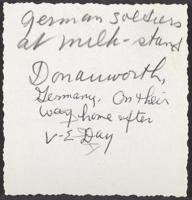 German soldiers
at milk-stand
Donauworth,
Germany. On their
way home after
V-E Day